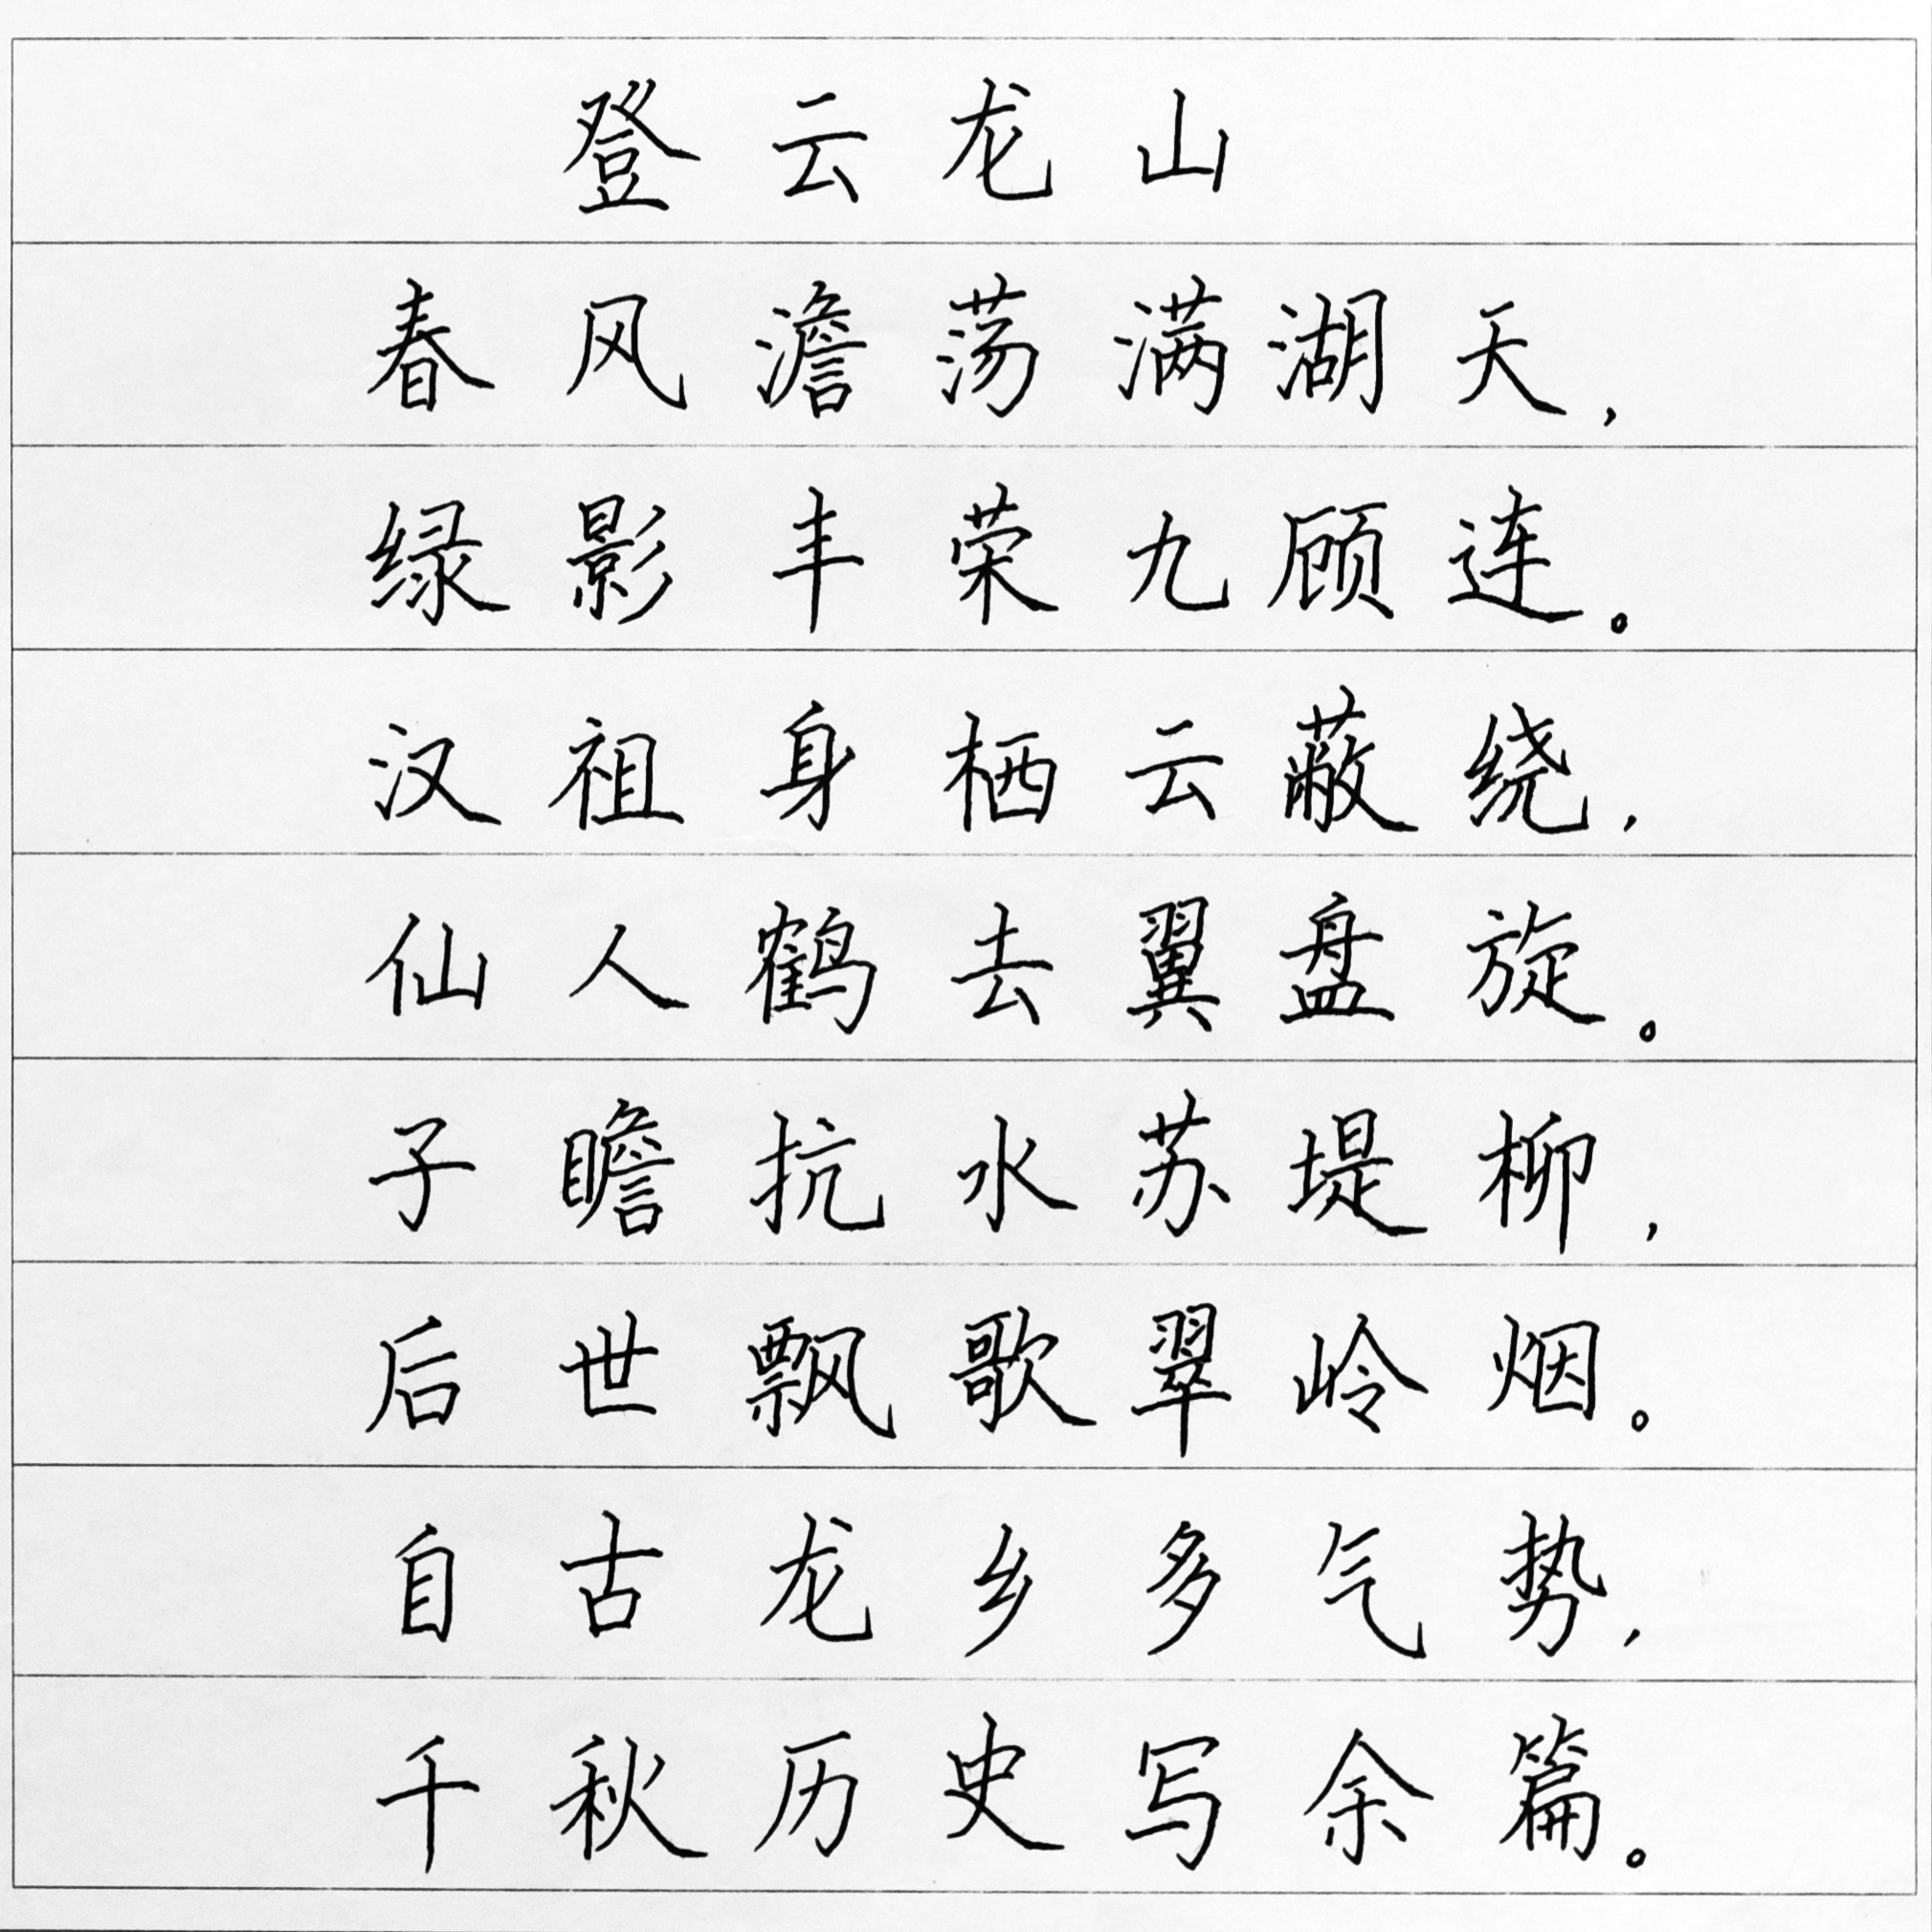 登云龙山
春风澹荡满湖天,
绿影丰荣九顾连。
汉祖身栖云蔽绕,
仙人鹤去翼盘旋。
子瞻抗水苏堤柳,
后世飘歌翠岭烟。
自古龙乡多气势,
千秋历史写余篇。